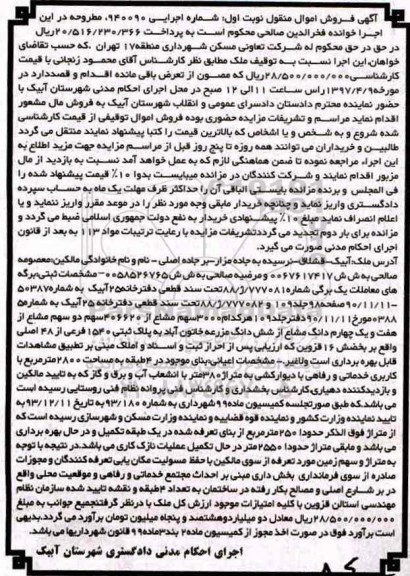 آگهی فروش اموال منقول نوبت اول: شماره اجرایی ۹۴۰۰۹۰، مطروحه در این
اجرا خوانده فخرالدین صالحی محکوم است به پرداخت ۲۰/۵۱۶/۲۳۰/۳۶۶ریال
در حق در حق محکوم له شرکت تعاونی مسکن شهرداری منطقه۱۷ تهران ،که حسب تقاضای
خواهان،این اجرا نسبت به توقیف ملک مطابق نظر کارشناس آقای محمود زنجانی با قیمت
کارشناسی۲۸/۵۰۰/۰۰۰/۰۰۰ریال که مصون از تعرض باقی مانده اقدام و قصددارد در
مورخه۱۳۹۷/۴/۹راس ساعت ۱۱الی ۱۲ صبح در محل اجرای احکام مدنی شهرستان آبیک با
حضور نماینده محترم دادستان دادسرای عمومی و انقلاب شهرستان آبیک به فروش مال مشعور
اقدام نماید مراسم و تشریفات مزایده حضوری بوده فروش اموال توقیفی از قیمت کارشناسی
شده شروع و به شخص و یا اشخاص که بالاترین قیمت را کتبا پیشنهاد نمایند منتقل می گردد
طالبین و خریداران می توانند همه روزه تا پنج روز قبل از مراسم مزایده جهت مزید اطلاع به
این اجراء مراجعه نموده تا ضمن هماهنگی لازم که به عمل خواهد آمد نسبت به بازدید از مال
مزبور اقدام نمایند و شرکت کنندگان در مزایده میبایست بدوا ۱۰٪ قیمت پیشنهاد شده را
فی المجلس و برنده مزایده بایستی الباقی آن را حداکثر ظرف مهلت یک ماه به حساب سپرده
دادگستری واریز نماید و چنانچه خریدار مابقی وجه مورد نظر را در موعد مقرر واریز ننماید و یا
اعلام انصراف نماید مبلغ ۱۰٪ پیشنهادی خریدار به نفع دولت جمهوری اسلامی ضبط می گردد و
مزایده برای بار دوم تجدید می گرددتشریفات مزایده با رعایت ترتیبات مواد ۱۱۳ به بعد از قانون
اجرای احکام مدنی صورت می گیرد.
آدرس ملک:آبیک-قشلاق-نرسیده به جاده مزار-بر جاده اصلی - نام و نام خانوادگی مالکین:معصومه
صالحی به ش ش ۰۰۶۷۶۱۷۴۱۷ و مرضیه صالحی به ش ش ۰۰۵۸۵۲۶۷۶۵-مشخصات ثبتی:برگه
های معاملات یک برگی شماره ۷۷۷۰۸۱/ژ/۸۸تحت سند قطعی دفترخانه۲۵آبیک به شماره۵۰۳۸۷
-۹۰/۱۱/۱۱صفحه۹۸جلد۱۰۹و۷۷۷۰۸۲/ژ/۸۸تحت سند قطعی دفترخانه ۲۵آبیک به شماره۵
۰۳۸۸مورخ۹۰/۱۱/۱۱دفترجلد۱۰۹هرکدام۳۰۰۰سهم مشاع از ۴۰۶۶۲۰سهم دو سهم مشاع از
هفت و یک چهارم دانگ مشاع از شش دانگ مزرعه خاتون آباد به پلاک ثبتی ۱۵۴۰ فرعی از ۴۸ اصلی
واقع بر بخش۱۶ قزوین که ارزیابی پس از احراز ثبت و اسناد و املاک مبنی بر تطبیق مشاهدات
قابل بهره برداری است والاغیر.- مشخصات اعیانی:بنای موجود در ۴طبقه به مساحت ۲۸۰۰مترمربع با
کاربری خدماتی و رفاهی با دیوارکشی به متراژ ۳۸۰متر با انشعاب آب و برق و گاز که به تایید مالکین
و بازدیدکننده دهیاری،کارشناس بخشداری و کارشناس فنی پروانه نظام فنی روستایی رسیده است
می باشد.که طبق صورتجلسه کمیسیون ماده۹۹شهرداری به شماره ۹۳/۱۸۰به تاریخ ۹۳/۱۲/۱۱ به
تایید نماینده وزارت کشور و نماینده قوه قضاییه و نماینده وزارت مسکن و شهرسازی رسیده است که
از متراژ فوق الذکر حدودا ۲۵۰مترمربع از بنای تعرفه شده در یک طبقه تکمیل و در حال بهره برداری
می باشد و مابقی متراژ حدودا ۲۵۵۰متر در حال تکمیل عملیات نازک کاری می باشد.در نتیجه با توجه
به متراژ و سهم زمین مورد تعرفه از سوی مالکین با حفظ مسولیت مکان یابی تعرفه کنندگان و مجوزات
صادره از سوی فرمانداری بخش داری مبنی بر احداث مجتمع خدماتی و رفاهی و موقعیت محلی واقع
در بر شارع اصلی و مصالح بکار رفته در ساختمان به تعداد ۴طبقه و نقشه تایید شده سازمان نظام
مهندسی استان قزوین با کلیه امتیازات موجود ارزش کل ملک با درنظر گرفتنجمیع جوانب به مبلغ
۲۸/۵۰۰/۰۰۰/۰۰۰ریال معادل دو میلیاردوهشتصد و پنجاه میلیون تومان برآورد می گردد.بدیهی
است برآورد فوق در صورت اخذ مجوز از کمیسیون ماده۲ بند۳ماده۹۹ قانون شهرداریها می باشد.
اجرای احکام مدنی دادگستری شهرستان آبیک